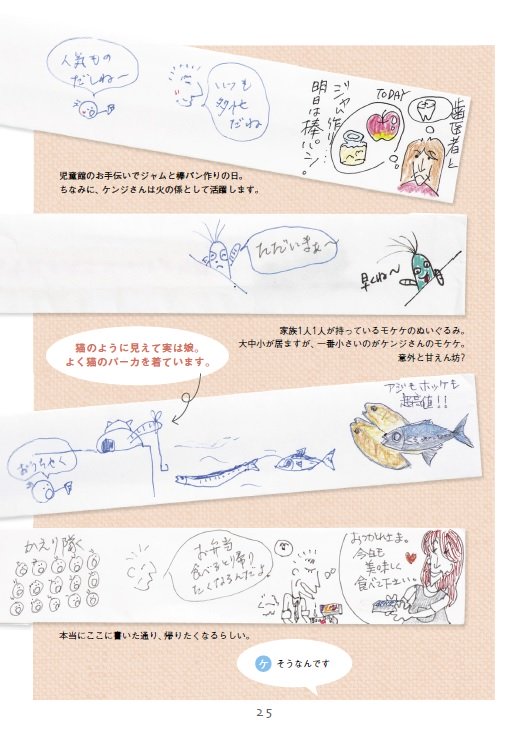 人気もの
だしねー
いつも
多忙
だね
TODAY
ジャム作り…
明日は棒パン。
歯医者と
児童館のお手伝いでジャムと棒パン作りの日。
ちなみに、ケンジさんは火の係として活躍します。
ただいまぁ〜
早くね〜
家族1人1人が持っているモケケのぬいぐるみ。
大中小が居ますが、一番小さいのがケンジさんのモケケ。
意外と甘えん坊?
猫のように見えて実は娘。
よく猫のパーカを着ています。
アジもホッケも
超高値!!
おうちゃく
かえり隊
お弁当
食べると帰り
たくなるんだよ。
おつかれさま。
今日も
美味しく
食べて下さい。
本当にここに書いた通り、帰りたくなるらしい。
ケ そうなんです
25